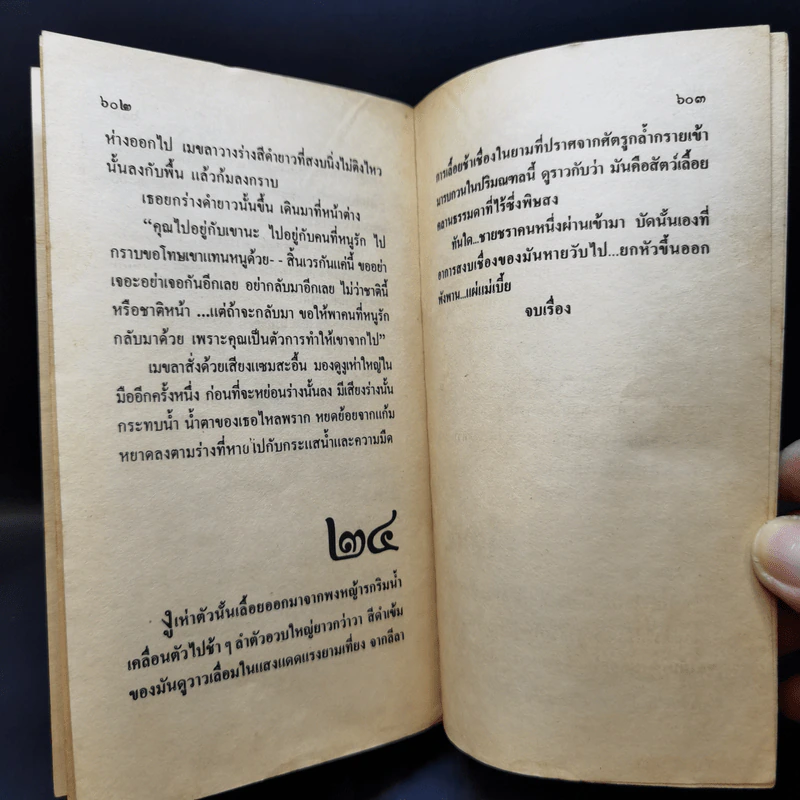 ๖๐๒
ห่างออกไป เมขลาวางร่างสีดำยาวที่สงบนิ่งไม่ติงไหว
นั้นลงกับพื้น แล้วก้มลงกราบ
เธอยกร่างดำยาวนั้นขึ้น เดินมาที่หน้าต่าง
“คุณไปอยู่กับเขานะ ไปอยู่กับคนที่หนูรัก ไป
กราบขอโทษเขาแทนหนูด้วย- - สิ้นเวรกันแค่นี้ ขออย่า
เจอะอย่าเจอกันอีกเลย อย่ากลับมาอีกเลย ไม่ว่าชาตินี้
หรือชาติหน้า ...แต่ถ้าจะกลับมา ขอให้พาคนที่หนูรัก
กลับมาด้วย เพราะคุณเป็นตัวการทำให้เขาจากไป”
เมขลาสั่งด้วยเสียงแซมสะอื้น มองดูงูเห่าใหญ่ใน
มืออีกครั้งหนึ่ง ก่อนที่จะหย่อนร่างนั้นลง มีเสียงร่างนั้น
กระทบน้ำ น้ำตาของเธอไหลพราก หยดย้อยจากแก้ม
หยาดลงตามร่างที่หายไปกับกระแสน้ำและความมืด
๒๔
งูเห่าตัวนั้นเลื้อยออกมาจากพงหญ้ารกริมน้ำ
เคลื่อนตัวไปช้า ๆ ลำตัวอวบใหญ่ยาวกว่าวา สีดำเข้ม
ของมันดูวาวเลื่อมในแสงแดดแรงยามเที่ยง จากลีลา
๖๐๓
การเลื้อยช้าเชื่องในยามที่ปราศจากศัตรูกล้ำกรายเข้า
มารบกวนในปริมณฑลนี้ ดูราวกับว่า มันคือสัตว์เลื้อย
คลานธรรมดาที่ไร้ซึ่งพิษสง
ทันใด...ชายชราคนหนึ่งผ่านเข้ามา บัดนั้นเองที่
อาการสงบเชื่องของมันหายวับไป...ยกหัวขึ้นออก
พังพาน...แผ่แม่เบี้ย
จบเรื่อง